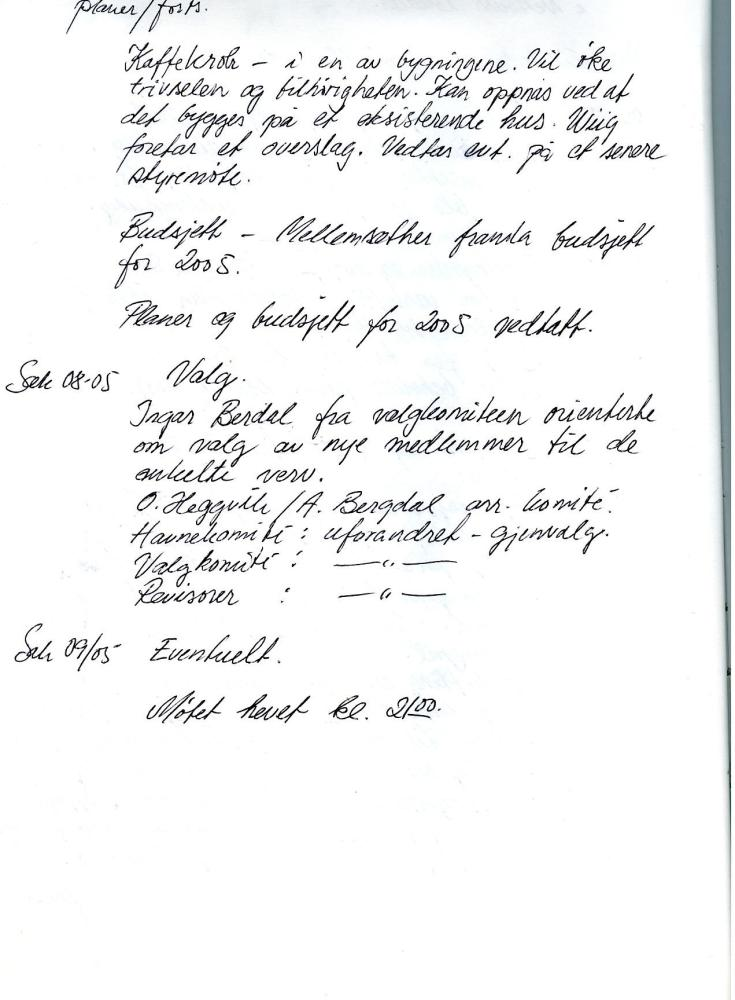 planer/forts.
Kaffekrok – i en av bygningene. Vil øke
trivselen og tilhørigheten. Kan oppnås ved at
det bygges på et eksisterende hus. Wiig
foretar et overslag. Vedtas evt. på et senere
styremøte.
Budsjett – Mellemsæther framla budsjett
for 2005.
Planer og budsjett for 2005 vedtatt.
Sak 08-05 Valg.
Ingar Berdal fra valgkomiteen orienterte
om valg av nye medlemmer til de
enkelte verv.
O. Heggvik / A. Bergdal arr. komité.
Havnekomité : uforandret – gjenvalg.
Valgkomité : — " —
Revisorer : — " —
Sak 09/05 Eventuelt.
Møtet hevet kl. 2100.